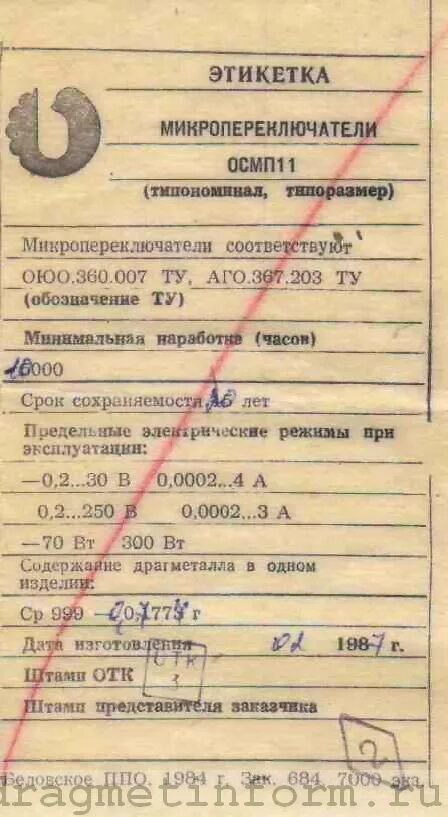 ЭТИКЕТКА
МИКРОПЕРЕКЛЮЧАТЕЛИ
ОСМП11
(типономинал, типоразмер)
Микропереключатели соответствуют
ОЮО.360.007 ТУ, АГО.367.203 ТУ
(обозначение ТУ)
Минимальная наработка (часов)
10000
Срок сохраняемости лет
Предельные электрические режимы при
эксплуатации:
—0,2...30 В 0,0002...4 А
0,2...250 В 0,0002...3 А
—70 Вт 300 Вт
Содержание драгметалла в одном
изделии:
Ср 999 — г
Дата изготовления 02 1987 г.
ОТК
Штамп ОТК
Штамп представителя заказчика
2
Беловское ППО. 1984 г. Зак. 684. 7000 экз.
dragmetinform.ru